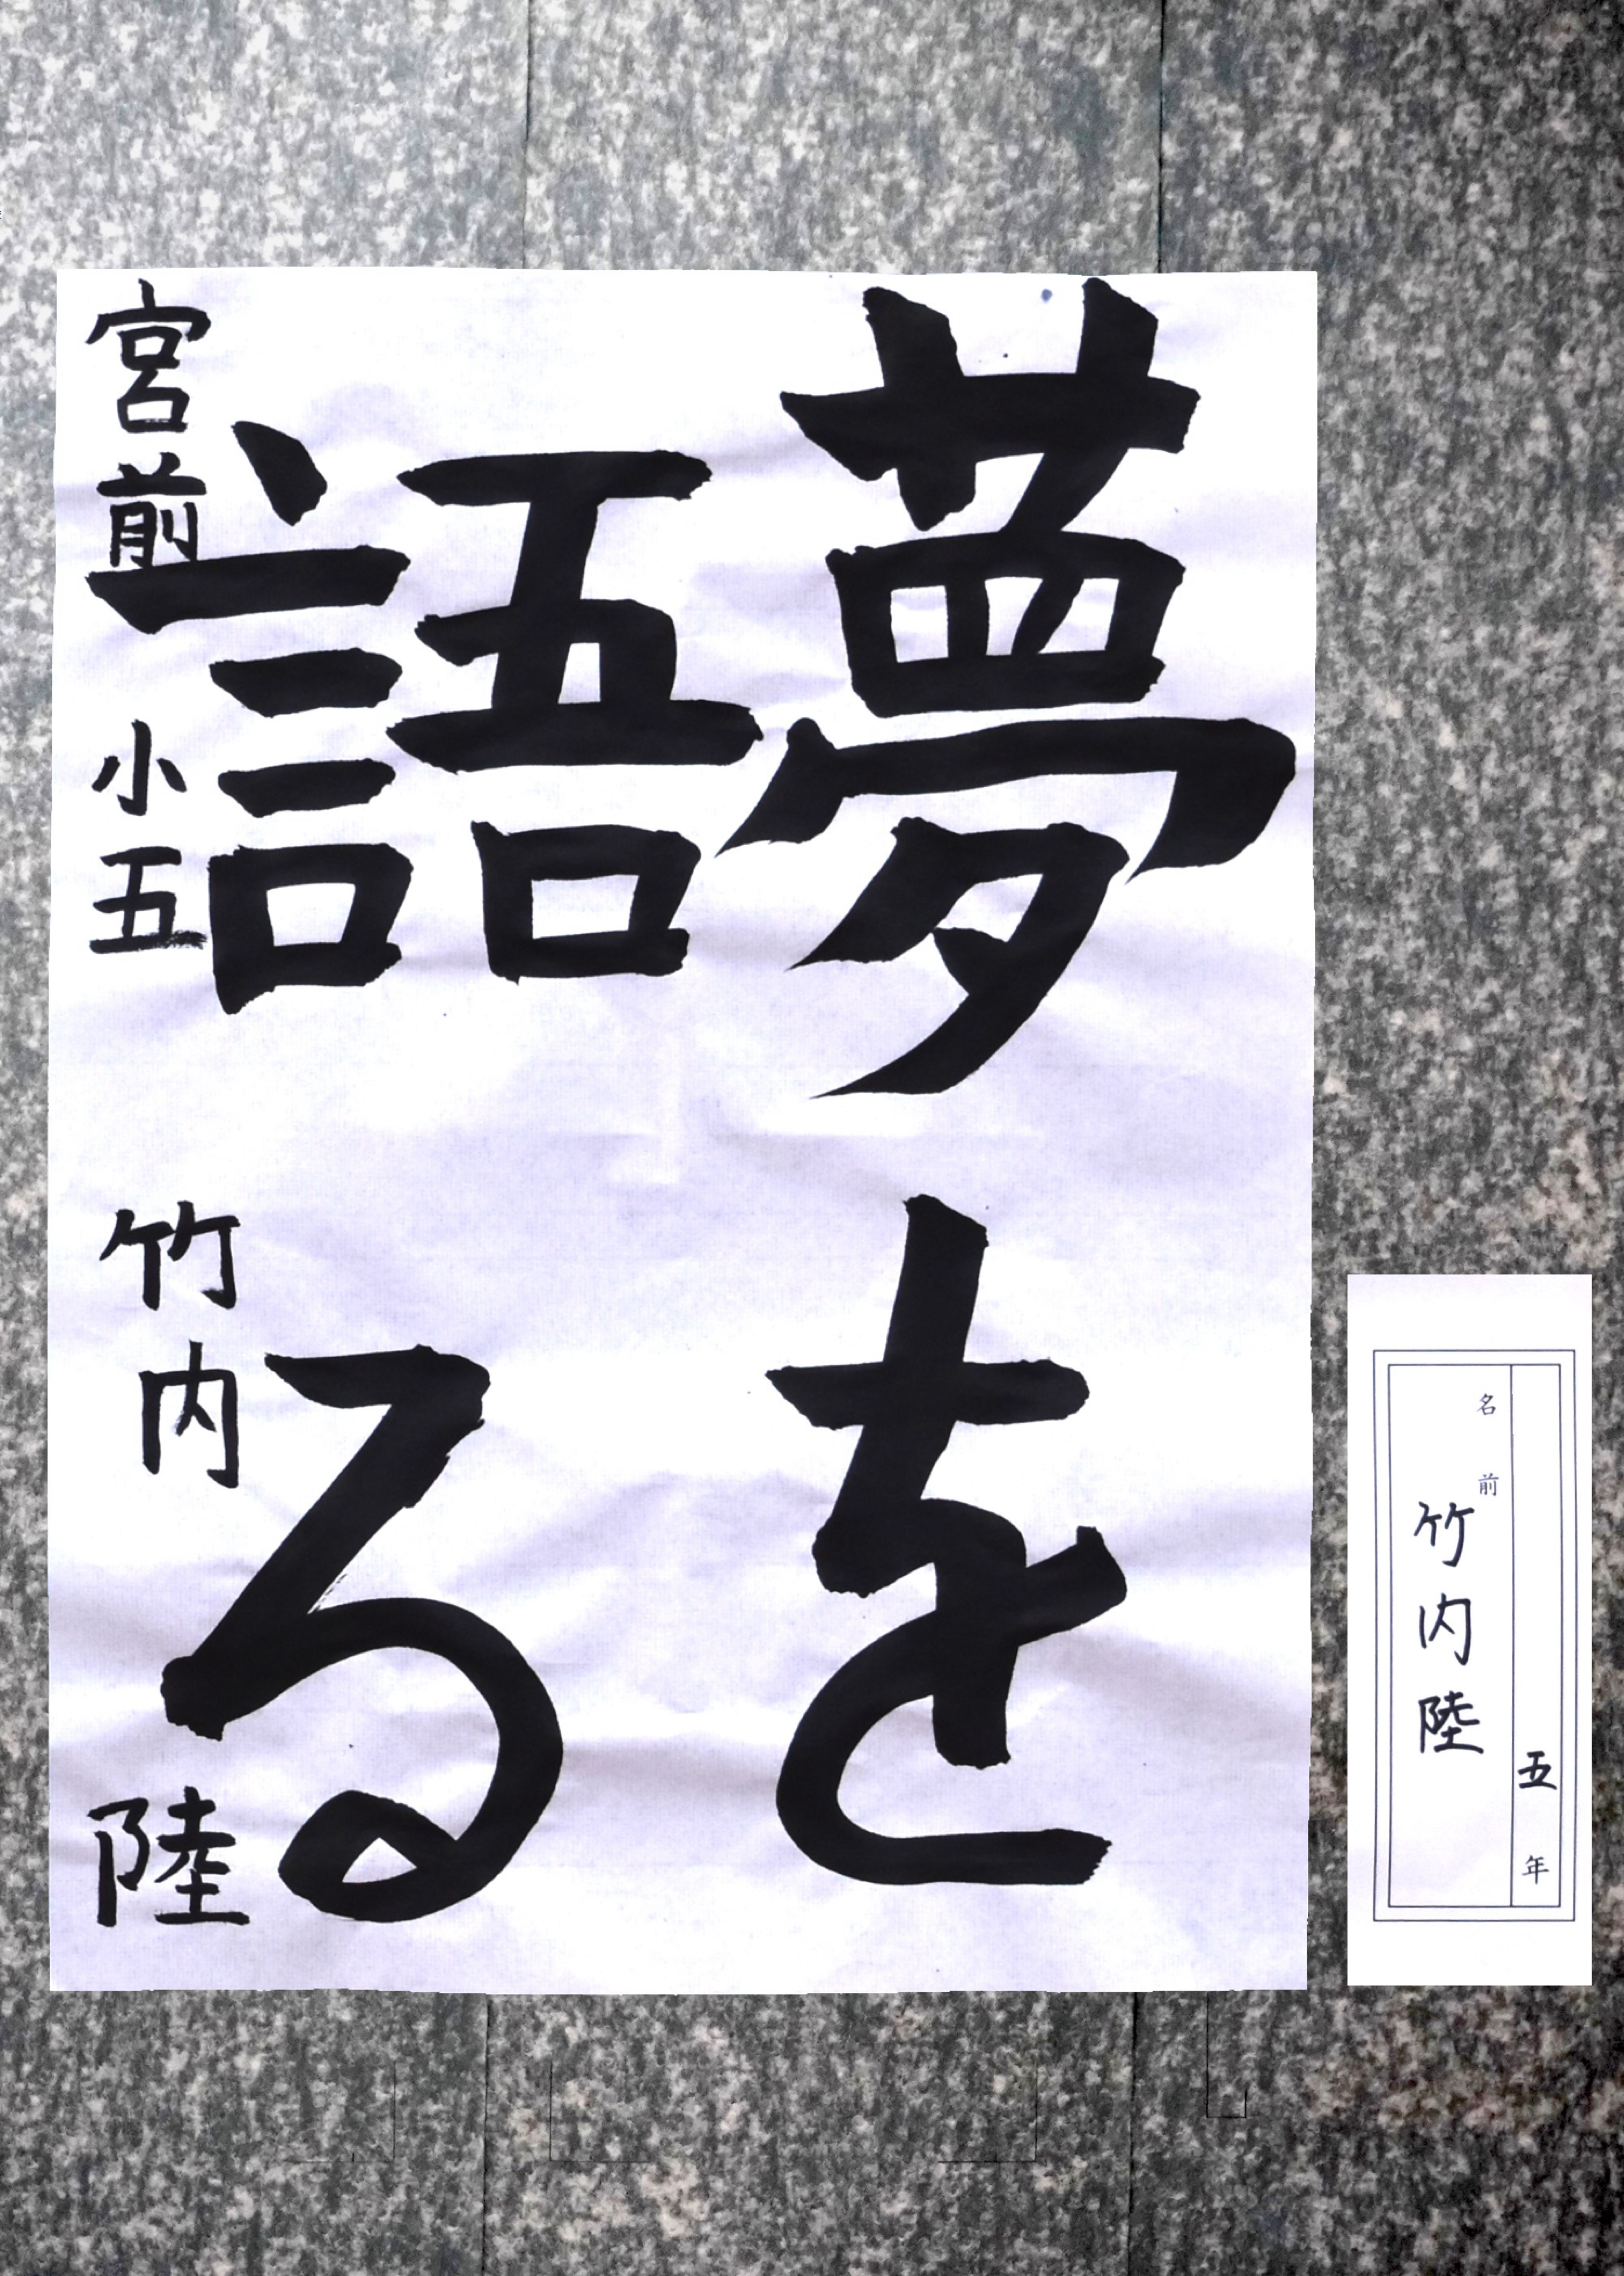 夢を
語る
宮前小五 竹内 陸
五年
名前 竹内陸